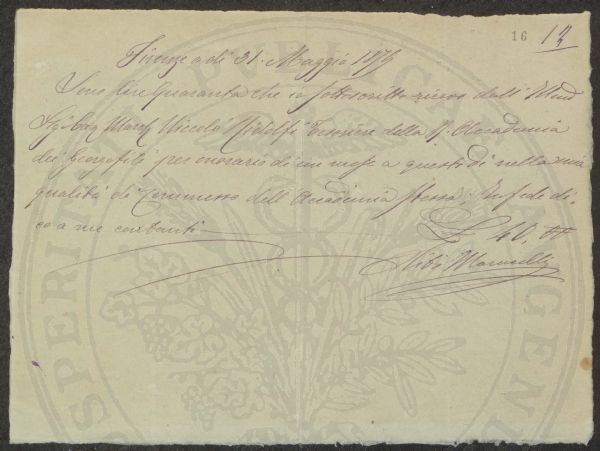 16 12
Firenze a dì 31. Maggio 1879
Sono Lire Quaranta che io sottoscritto ricevo dall'
Sig. Cav. March. Niccolò Ridolfi Tesoriere della R. Accademia
dei Georgofili per onorario di un mese a questo dì nella mia
qualità di Commesso dell'Accademia stessa; In fede di-
co a me contanti
£ 40,
PROSPERITATI PUBLICAE AUGENDAE